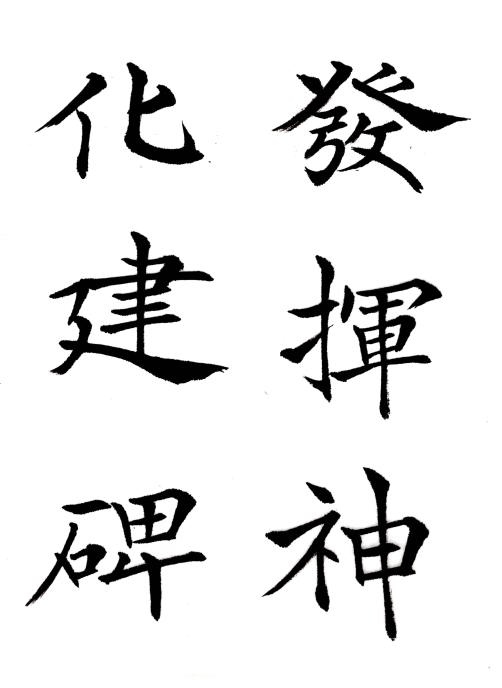 發揮神
化建碑